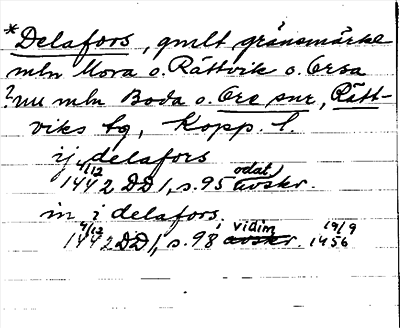 *Delafors, gmlt gränsmärke
mln Mora o. Rättvik o. Orsa
?nu mln Boda o. Ore snr, Rätt-
viks tg, Kopp. l.
ij delafors
4/12 1442 DD 1, s. 95 odat. avskr.
in i delafors,
4/12 1442 DD 1, s. 98 vidim 19/9 1456